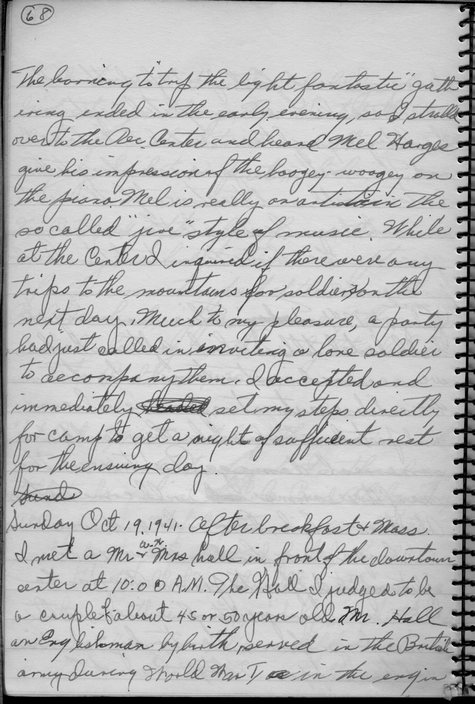 68
The learning to "trip the light fantastic" gath
ering ended in the early evening, so I strolled
over to the Rec. Center and heard Mel Harges
give his impression of the boogey-woogey on
the piano. Mel is really an artist in the
so called "jive" style of music. While
at the Center I inquired if there were any
trips to the mountains for soldiers on the
next day. Much to my pleasure, a party
had just called in inviting a lone soldier
to accompany them. I accepted and
immediately set my steps directly
for camp to get a night of sufficient rest
for the ensuing day.
Sund
Sunday Oct 19, 1941. After breakfast & Mass
I met a Mr & Mrs hall in front of the downtown
center at 10:00 A.M. The Hall I judged to be
a couple of about 45 or 50 years old. Mr. Hall
an Englishman by birth, served in the British
army during World War I in the engin